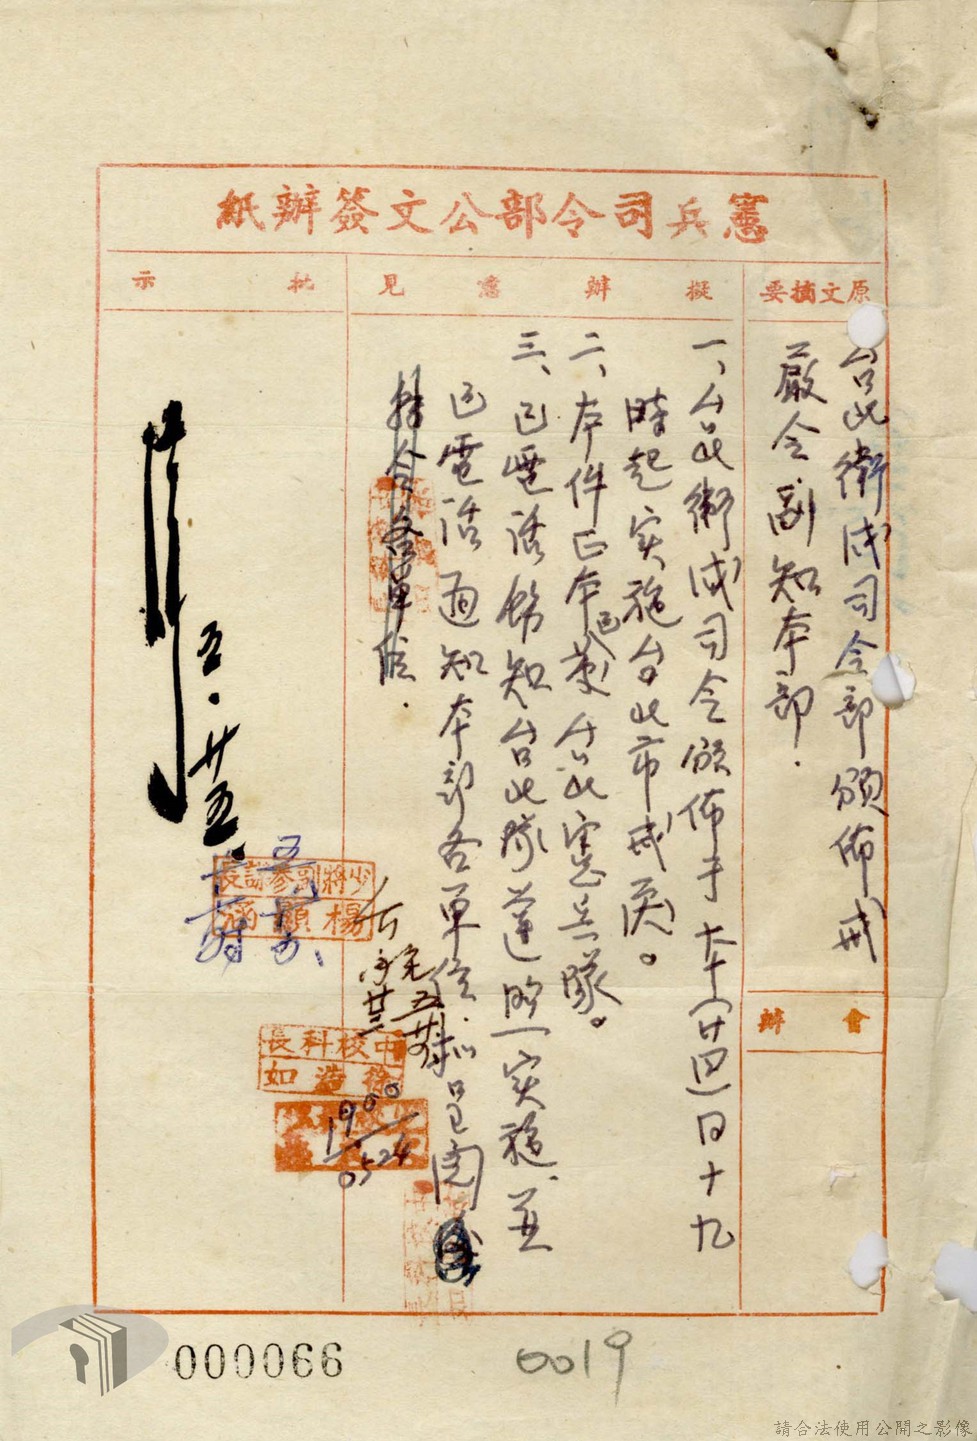 憲兵司令部公文簽辦紙
原文摘要
擬辦意見
批示
台北衛戍司令部頒佈戒
嚴令副知本部.
會辦
一、台北衛戍司令頒佈于本(廿四)日十九
時起实施台北市戒嚴。
二、本件正本已發台北憲兵隊。
三、已電話飭知台北隊遵照实施、並
已電話通知本部各單位.擬呈閱
轉令各單位.
五.廿五.
少將副參謀長
楊顯涵
中校科長
徐造如
1900
0524
000066
0019
請合法使用公開之影像